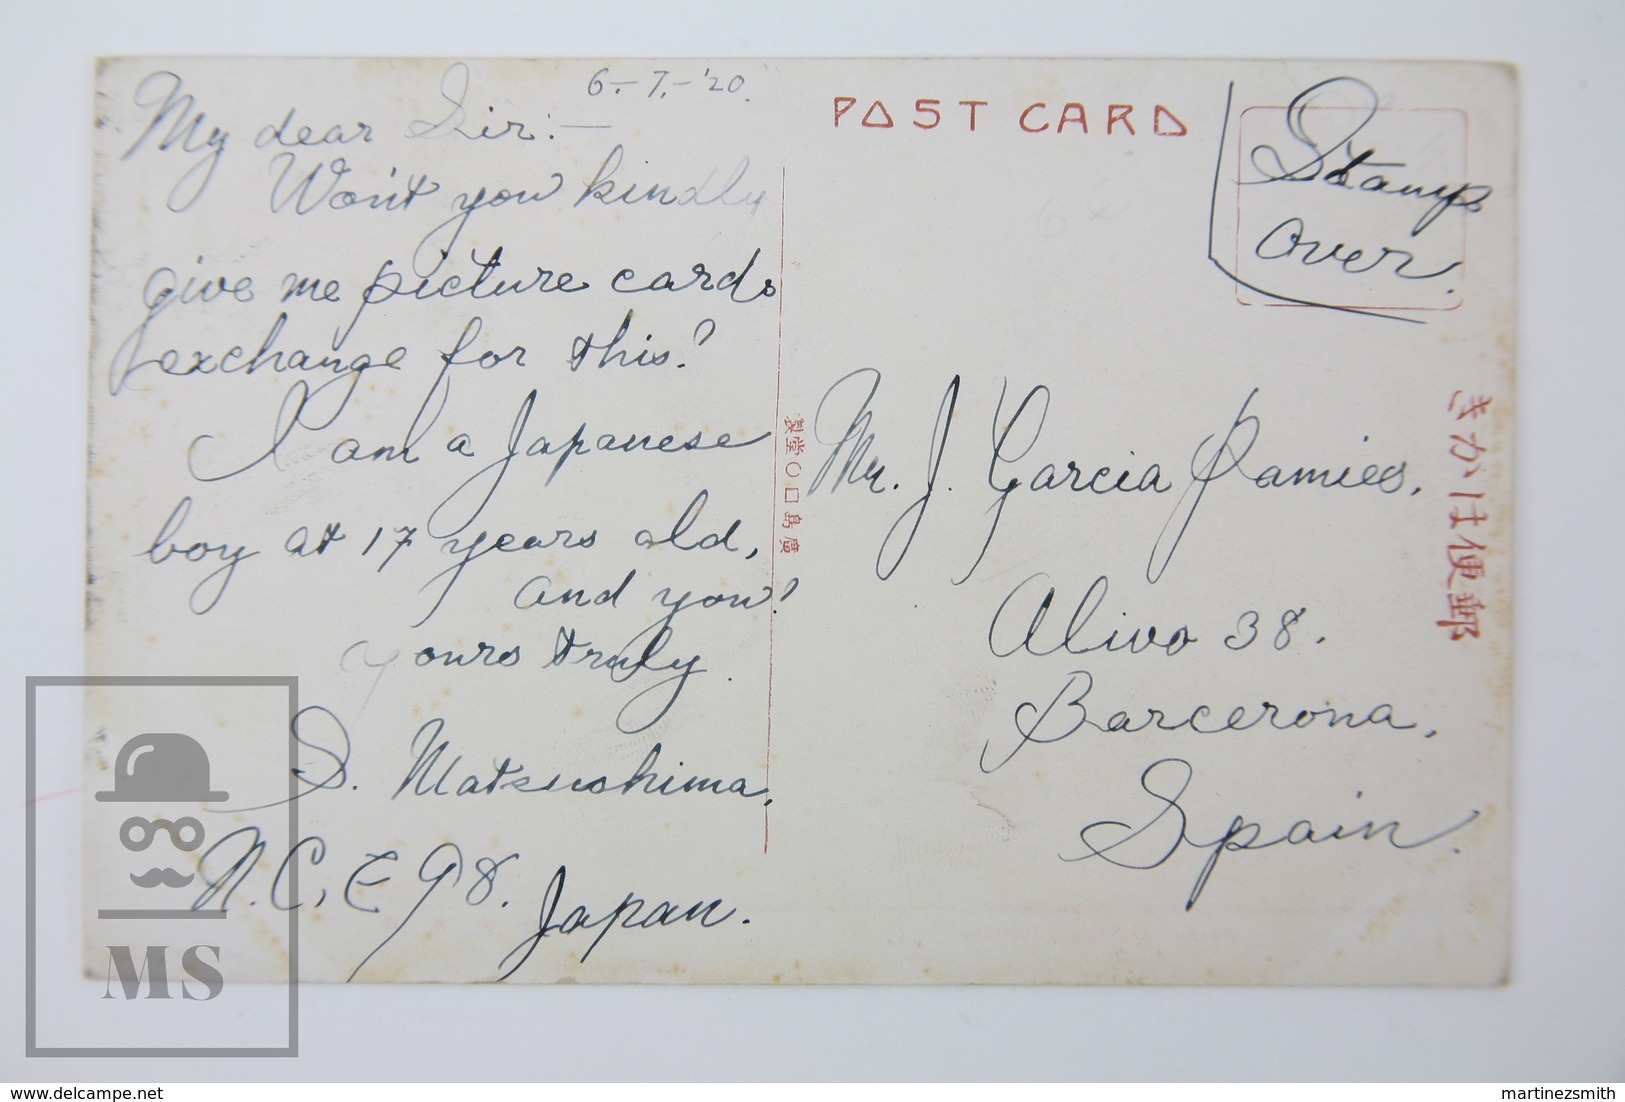 6.-7.-'20.
My dear Sir:—
Won't you kindly
give me picture cards
exchange for this?
I am a Japanese
boy at 17 years old,
and you?
yours truly.
S. Matsushima.
N.C. E 98. Japan.
POST CARD
Stamp
over.
Mr. J. Garcia Ramies.
Olivo 38.
Barcerona.
Spain.
きかは便郵
製堂〇口島廣
MS
www.delcampe.net
martinezsmith